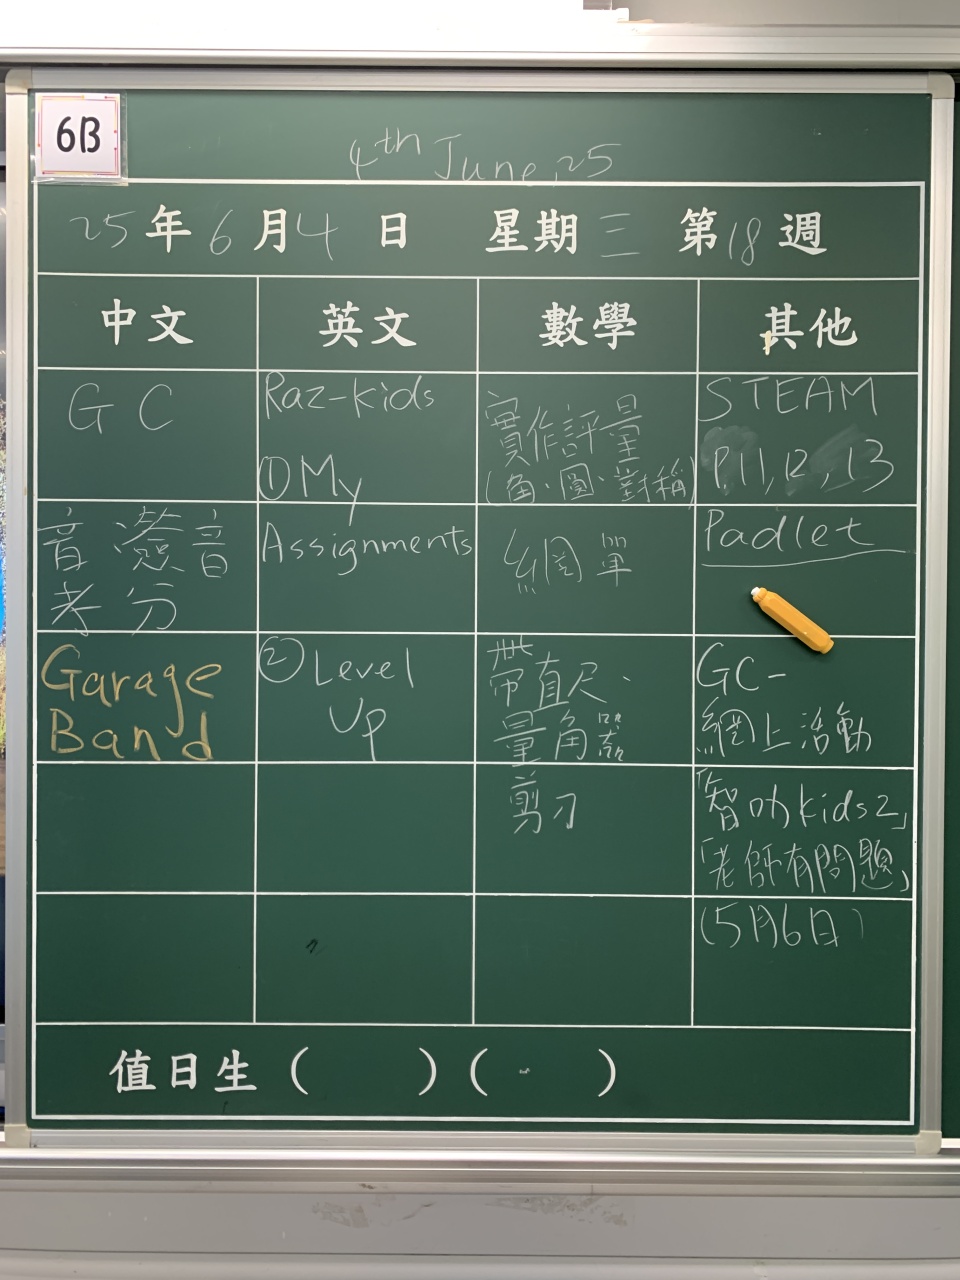 6B
4th June, 25
25年6月4日 星期三 第18週
中文 英文 數學 其他
GC
音:簽音
考分
Garage
Band
Raz-kids
①My
Assignments
②Level
Up
實作評量
(角、圓、對稱)
網單
帶直尺、
量角器
剪刀
STEAM
P.11,12,13
Padlet
GC-
網上活動
「智叻kids2」
「老師有問題」
(5月6日)
值日生 ( ) ( )